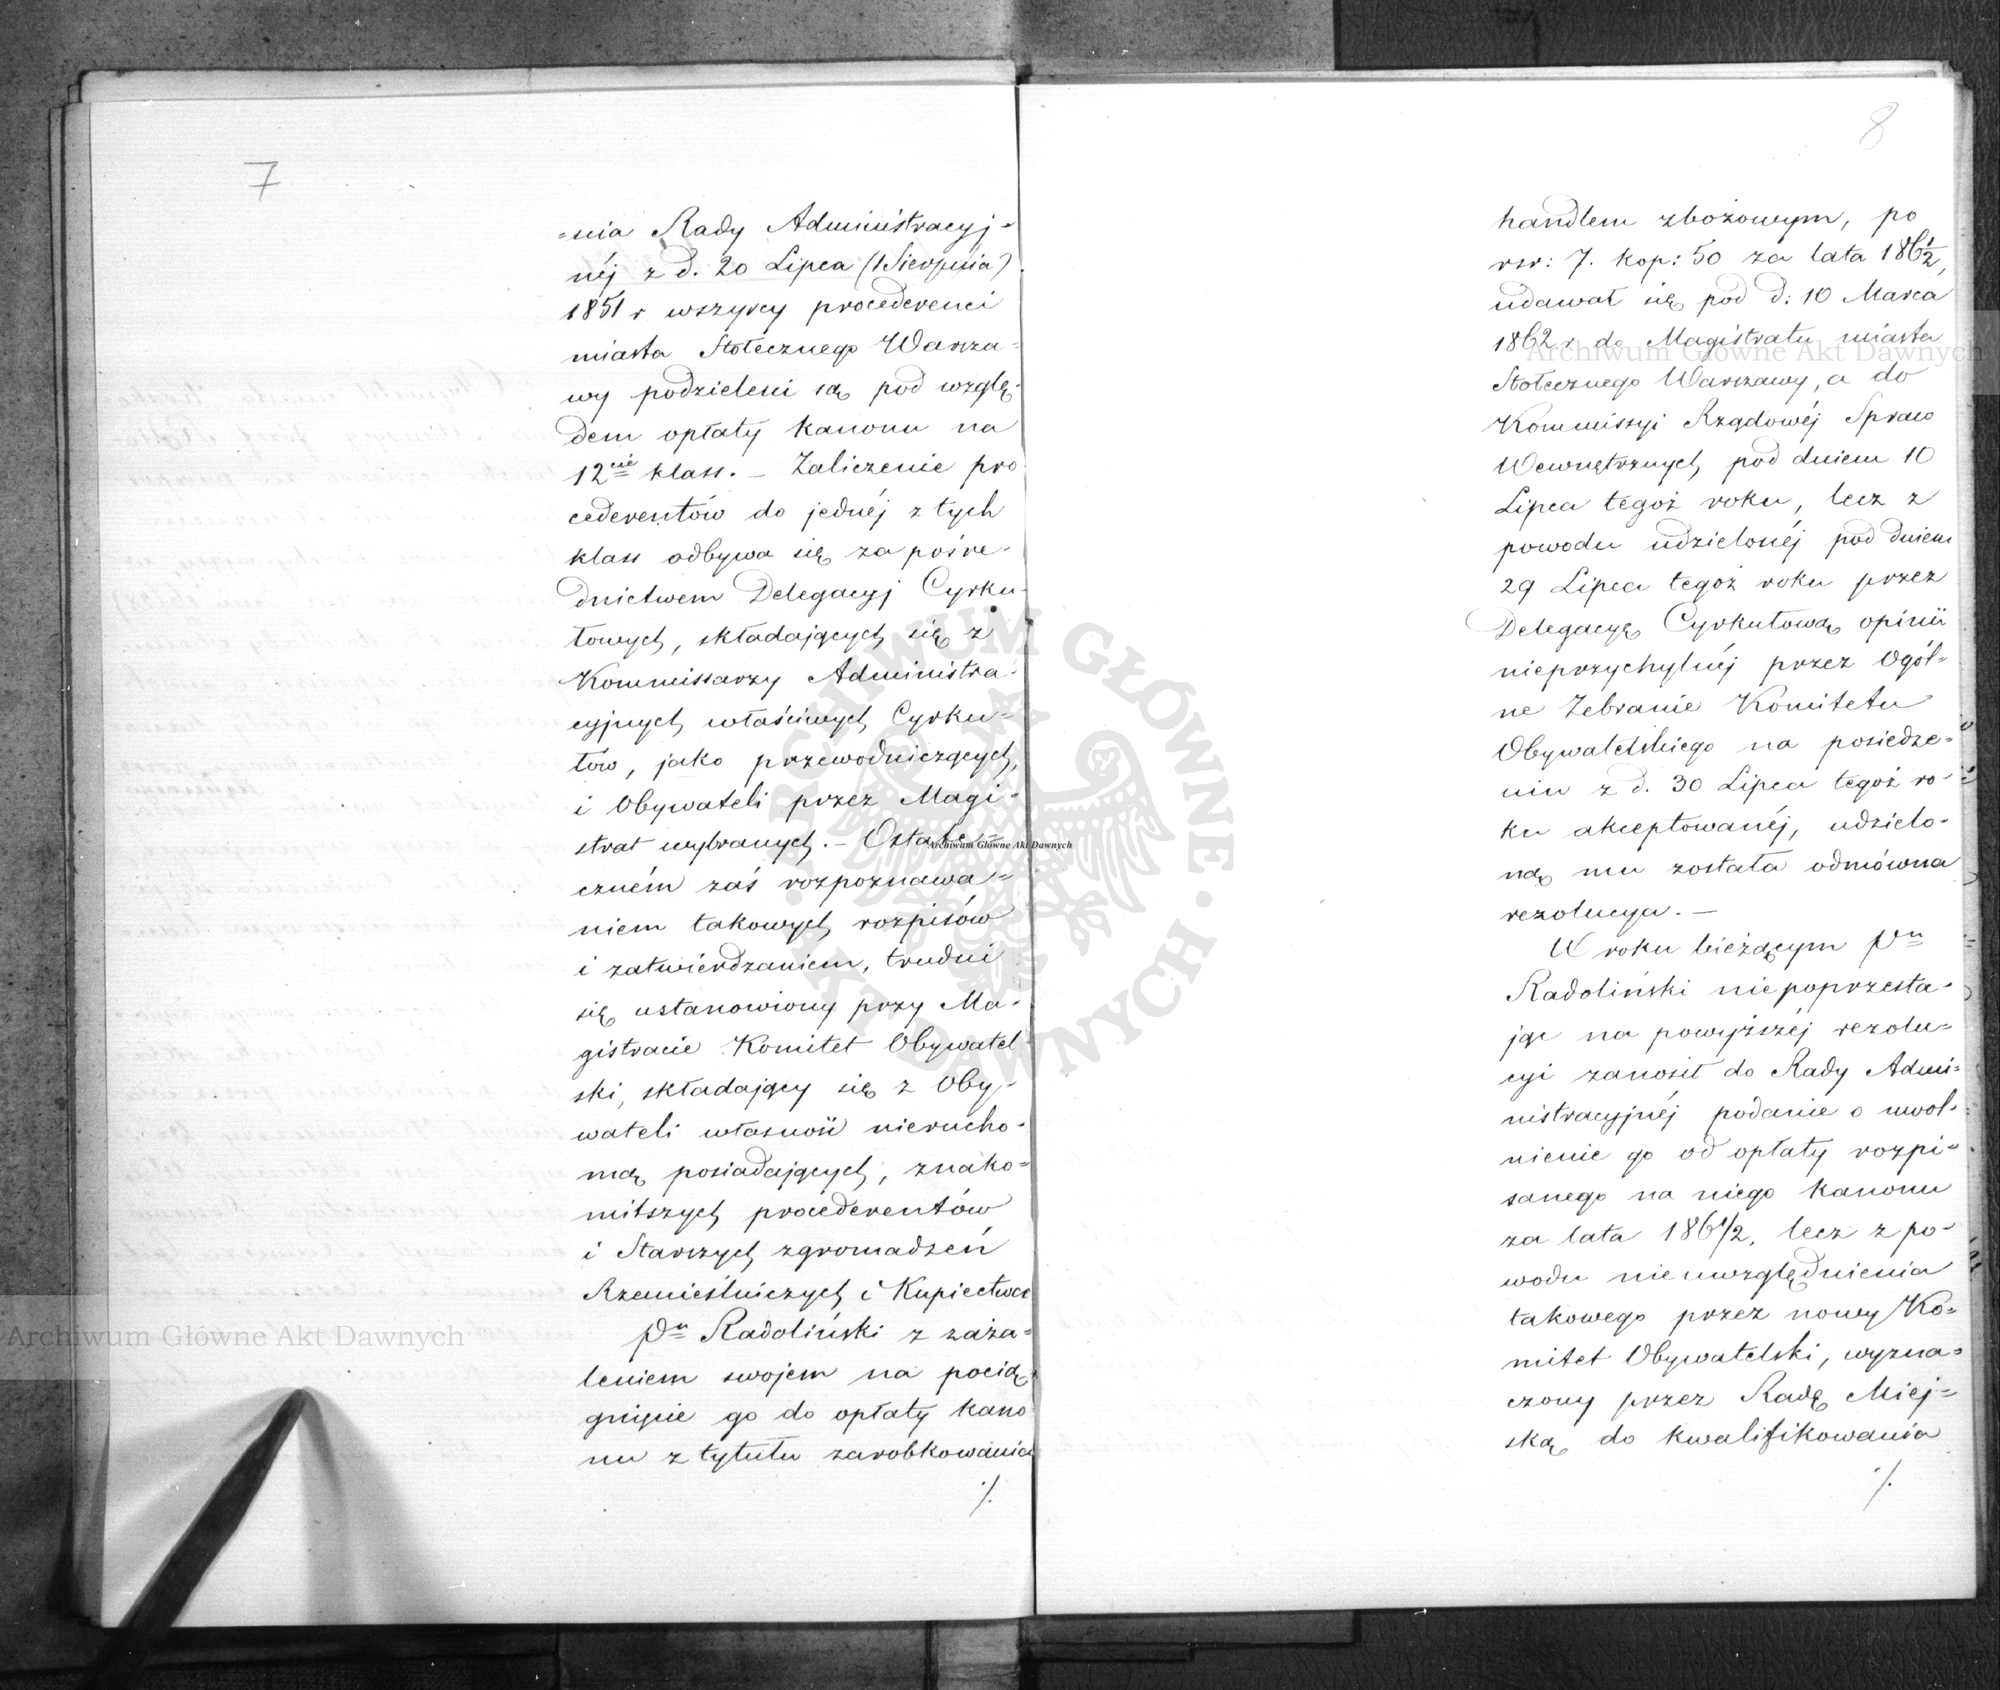 7
=nia Rady Administracyj=
néj z d. 20 Lipca (1 Sierpnia)
1851 r wszyscy procederenci
miasta Stołecznego Warsza=
wy podzieleni są pod wzglę=
dem opłaty kanonu na
12cie klass. – Zaliczenie pro
cederentów do jednéj z tych
klass odbywa się za pośre=
dnictwem Delegacyj Cyrku=
łowych, składających się z
Kommissarzy Administra=
cyjnych właściwych Cyrku=
łów, jako przewodniczących,
i Obywateli przez Magi=
strat wybranych. – Ostate=
czném zaś rozpoznawa=
niem takowych rozpisów
i zatwierdzaniem, trudni
się ustanowiony przy Ma=
gistracie Komitet Obywatel
ski, składający się z Oby=
wateli własność nierucho=
mą posiadających, znako=
mitszych procederentów
i Starszych zgromadzeń
Rzemieślniczych i Kupiectwa
Pn Radoliński z zaża=
leniem swojem na pocią
gnięcie go do opłaty kano
nu z tytułu zarobkowania
./.
8
handlem zbożowym, po
rsr: 7. kop: 50 za lata 1861/2,
udawał się pod d: 10 Marca
1862 r do Magistratu miasta
Stołecznego Warszawy, a do
Kommissyi Rządowéj Spraw
Wewnętrznych pod dniem 10
Lipca tegoż roku, lecz z
powodu udzielonéj pod dniem
29 Lipca tegoż roku przez
Delegacyę Cyrkułową opinii
nieprzychylnéj przez Ogól=
ne Zebranie Komitetu
Obywatelskiego na posiedze=
niu z d. 30 Lipca tegoż ro=
ku akceptowanéj, udzielo=
ną mu została odmówna
rezolucya. –
W roku bieżącym Pn
Radoliński niepoprzesta=
jąc na powyższéj rezolu=
cyi zanosił do Rady Admi=
nistracyjnéj podanie o uwol=
nienie go od opłaty rozpi=
sanego na niego kanonu
za lata 1861/2, lecz z po=
wodu nieuwzględnienia
takowego przez nowy Ko=
mitet Obywatelski, wyzna=
czony przez Radę Miej=
ską do kwalifikowania
./.
ARCHIWUM GŁÓWNE · AKT DAWNYCH ·
Archiwum Główne Akt Dawnych
Archiwum Główne Akt Dawnych
Archiwum Główne Akt Dawnych